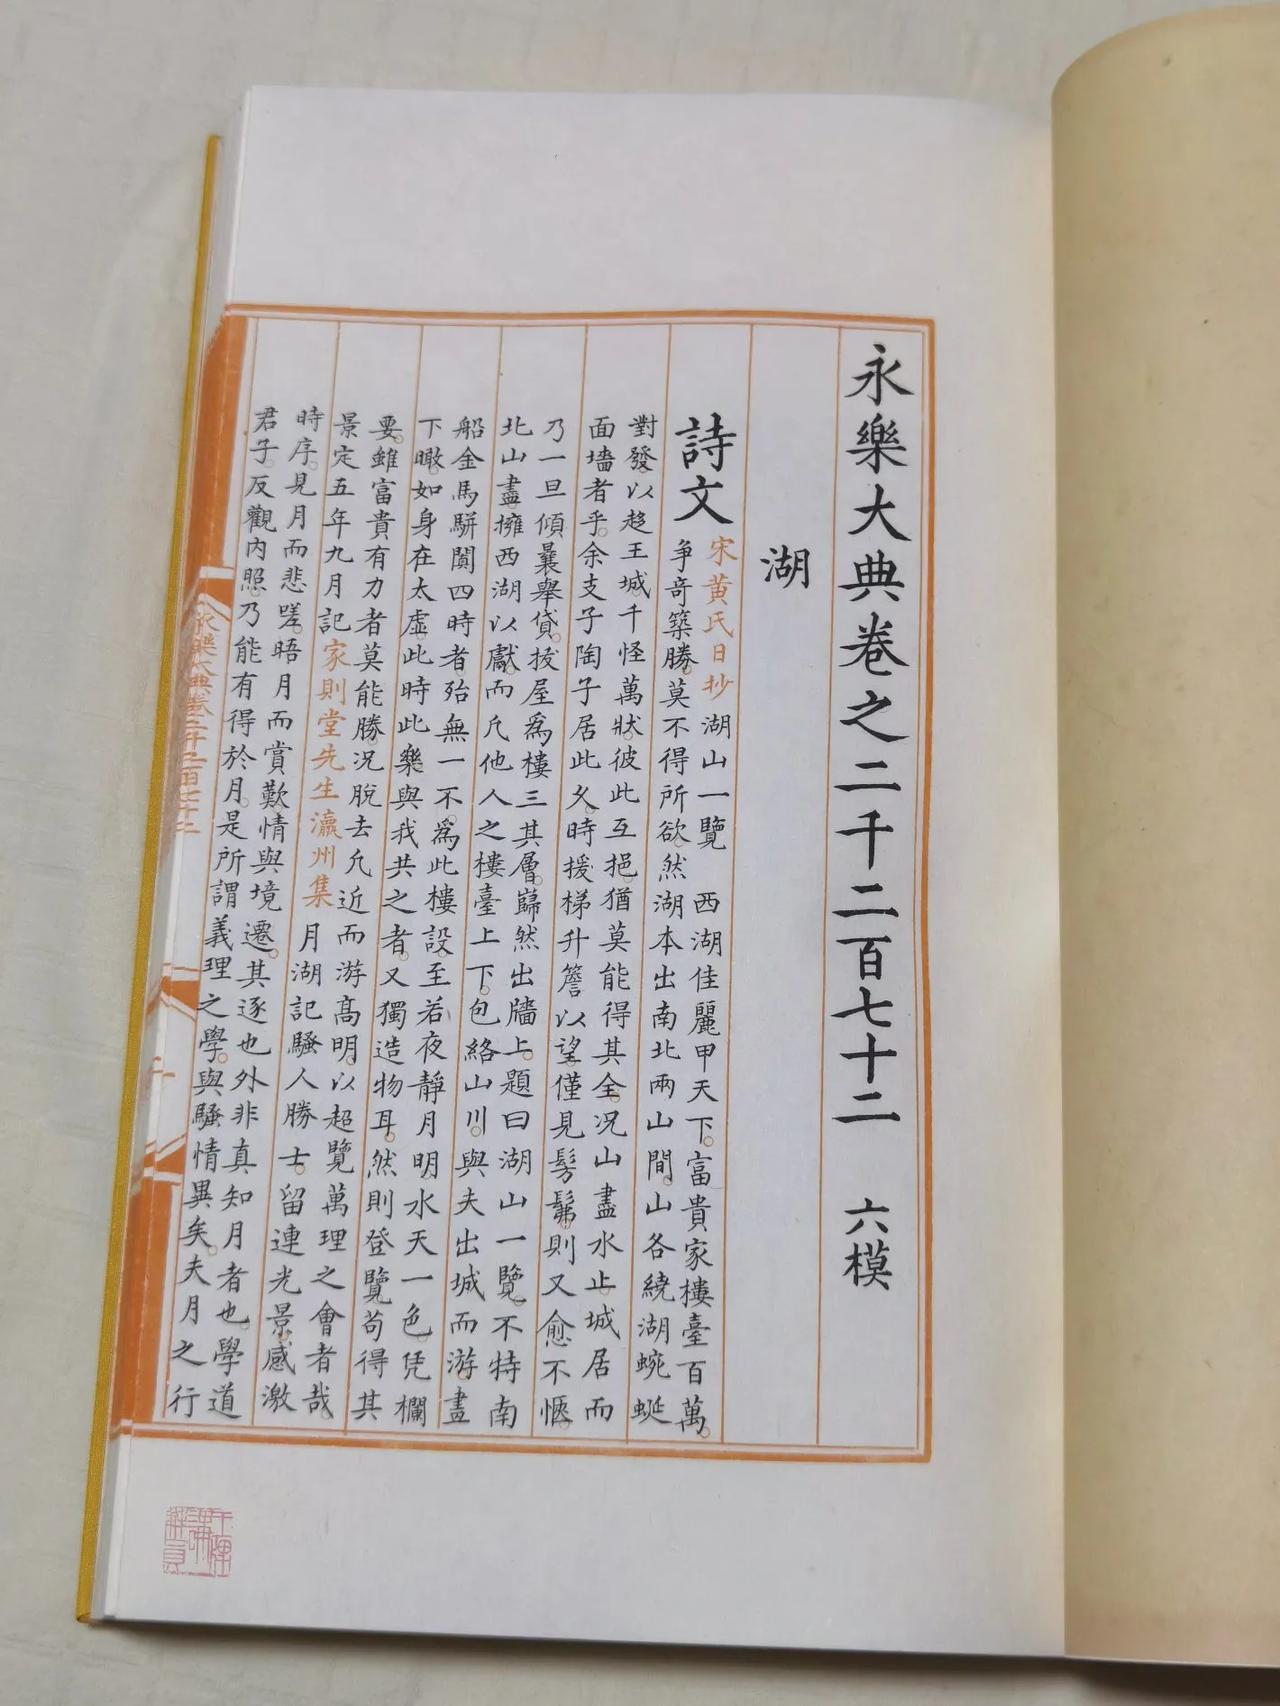 永樂大典卷之二千二百七十二 六模
湖
詩文
宋黄氏日抄湖山一覽 西湖佳麗甲天下。富貴家樓臺百萬。
争奇築勝。莫不得所欲。然湖本出南北兩山間。山各繞湖蜿蜒
對發。以趍王城。千怪萬狀。彼此互挹。猶莫能得其全。况山盡水止。城居而
面墻者乎。余支子陶子居此乆。時援梯升簷以望。僅見髣髴。則又愈不愜。
乃一旦傾曩舉貸。拔屋爲樓三其層。巋然出牆上。題曰湖山一覽。不特南
北山盡。擁西湖以獻。而凡他人之樓臺上下。包絡山川。與夫出城而游。畫
船金馬駢闐四時者。殆無一不爲此樓設。至若夜靜月明。水天一色。凭欄
下瞰。如身在太虛。此時此樂。與我共之者。又獨造物耳。然則登覽。苟得其
要。雖富貴有力者莫能勝。况脫去凡近而游髙明。以超覽萬理之會者哉。
景定五年九月記家則堂先生瀛州集月湖記騷人勝士。留連光景。感激
時序。見月而悲嗟。晤月而賞歎。情與境遷。其逐也外。非真知月者也。學道
君子。反觀内照。乃能有得於月。是所謂義理之學。與騷情異矣。夫月之行
永樂大典卷二千二百七十二